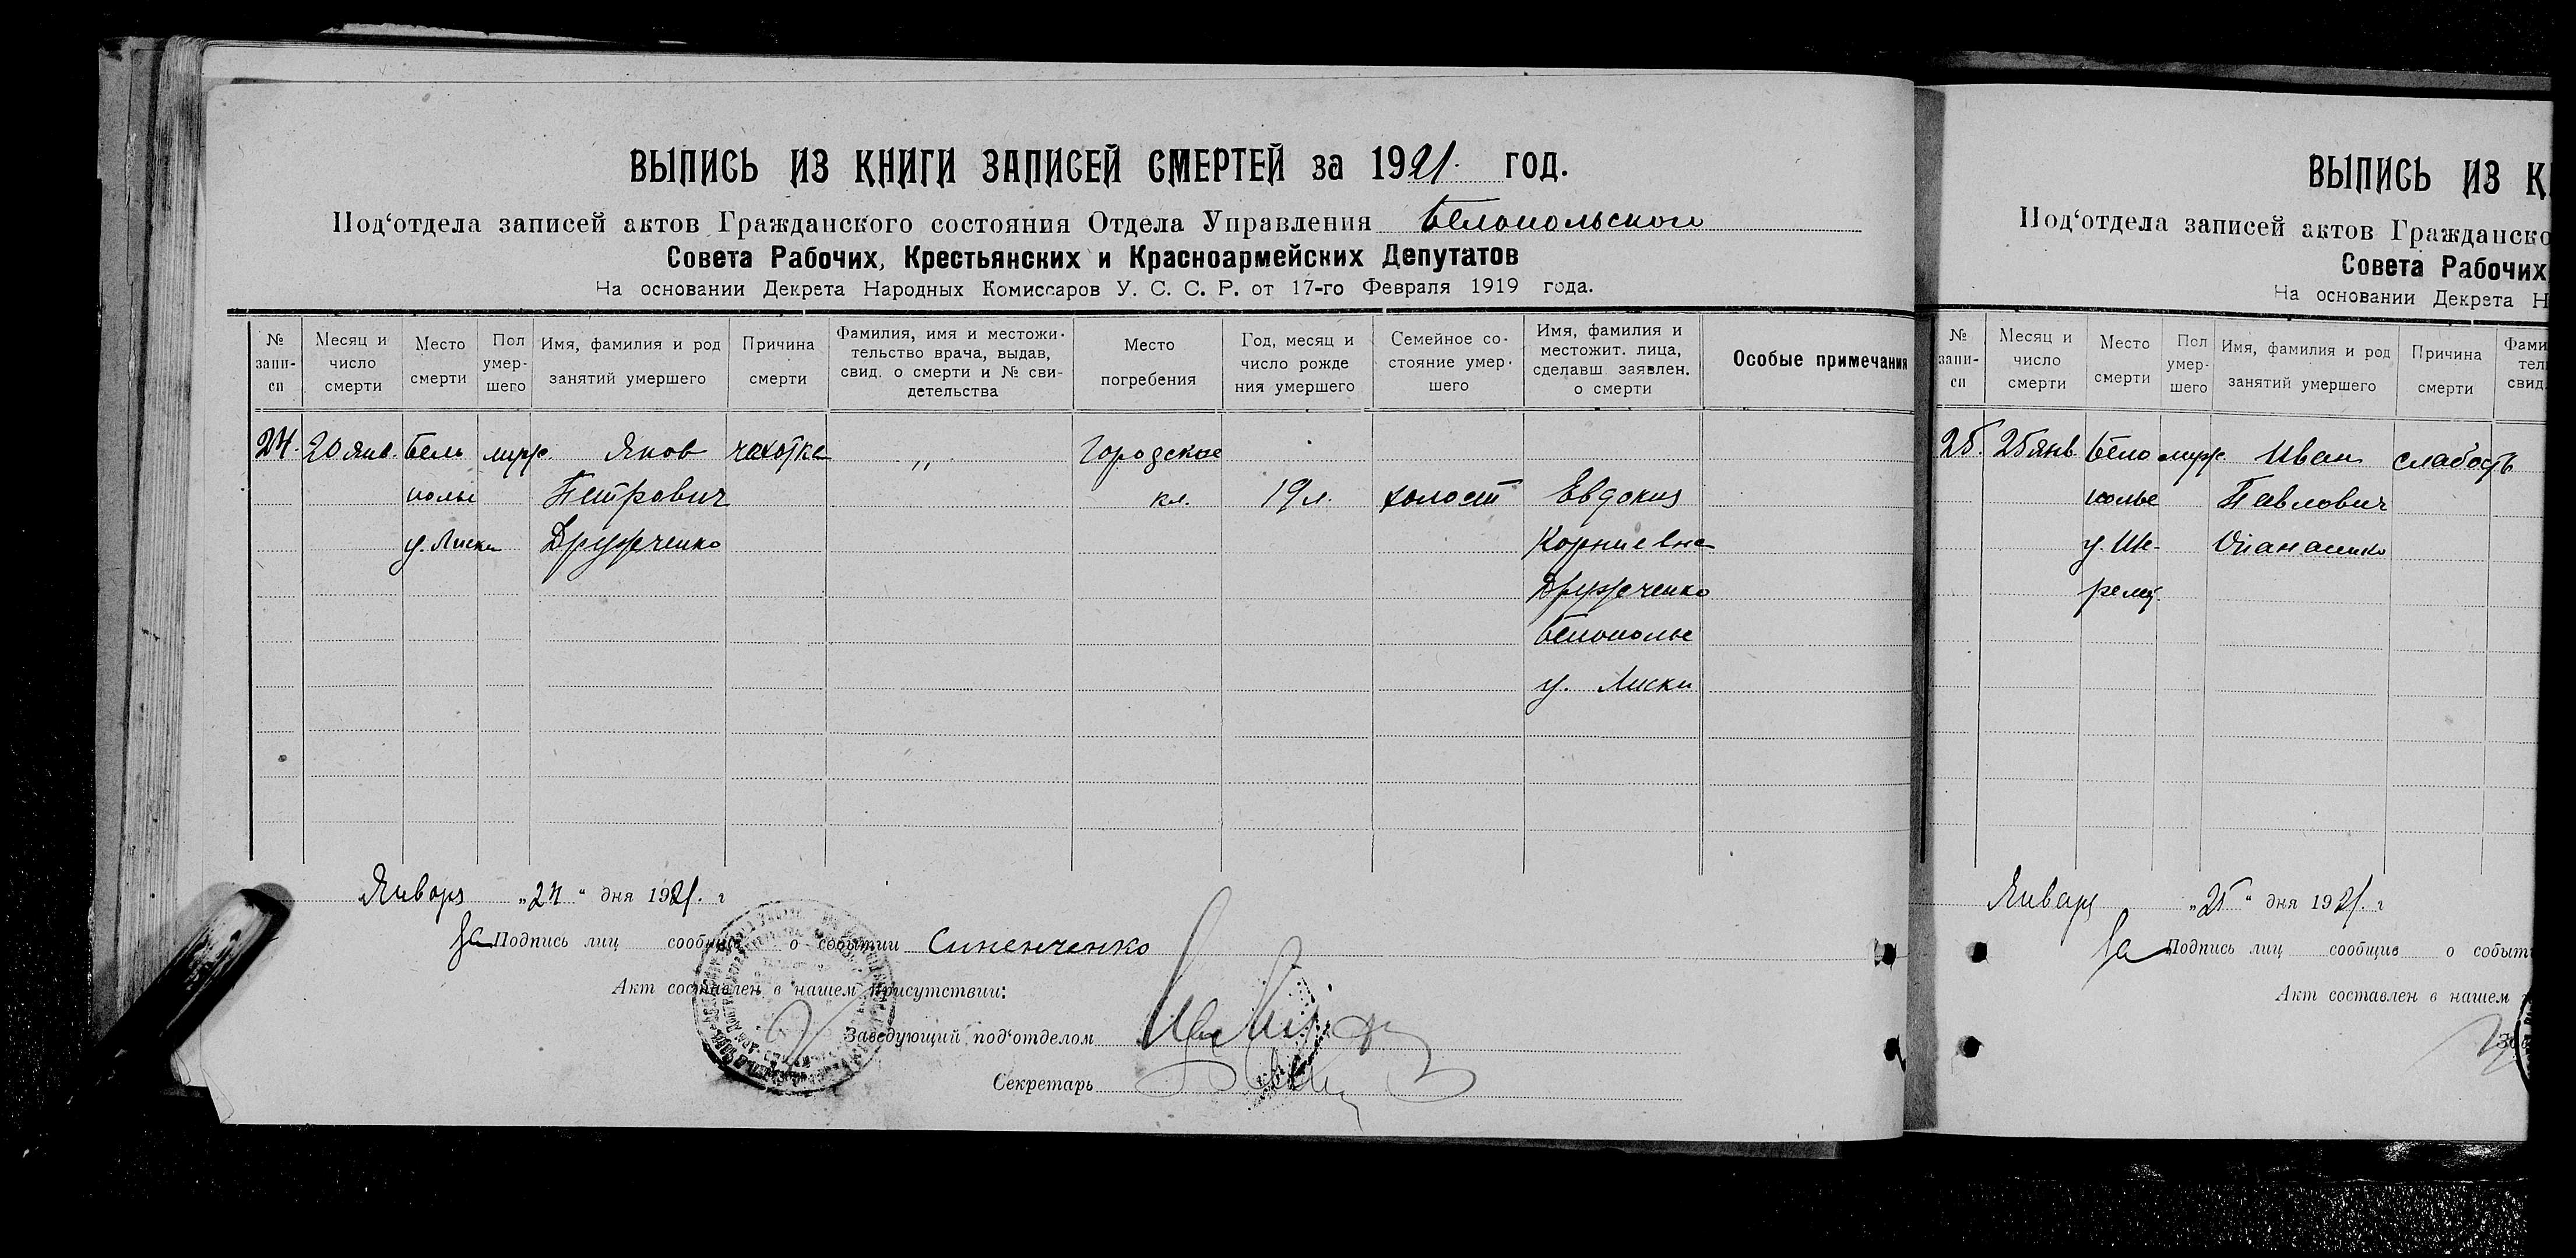 ВЫПИСЬ ИЗ КНИГИ ЗАПИСЕЙ СМЕРТЕЙ за 1921. год.
Под‘отдела записей актов Гражданского состояния Отдела Управления Белопольского
Совета Рабочих, Крестьянских и Красноармейских Депутатов
На основании Декрета Народных Комиссаров У. С. С. Р. от 17-го Февраля 1919 года.
№ запи- си
Месяц и число смерти
Место смерти
Пол умер- шего
Имя, фамилия и род занятий умершего
Причина смерти
Фамилия, имя и местожи- тельство врача, выдав, свид. о смерти и № сви- детельства
Место погребения
Год, месяц и число рожде ния умершего
Семейное со- стояние умер- шего
Имя, фамилия и местожит. лица, сделавш заявлен. о смерти
Особые примечания
24. 20 янв. Бело муж. Яков чахотка „ Городское
полье Петрович кл. 19 л. холост Евдокия
у. Лиски Дружченко Корниевна
Дружченко
Белополье
у. Лиски
Января „24“ дня 1921. г
За Подпись лиц сообщив о событии Синенченко
Акт составлен в нашем присутствии:
Заведующий под‘отделом
Секретарь
ВЫПИСЬ ИЗ К
Под‘отдела записей актов Гражданско
Совета Рабочих
На основании Декрета Н
№ запи- си
Месяц и число смерти
Место смерти
Пол умер- шего
Имя, фамилия и род занятий умершего
Причина смерти
Фами тел свид.
25. 25 янв. Бело муж. Иван слабость
полье Павлович
Января „25“ дня 1921. г
За Подпись лиц сообщив о событ
Акт составлен в нашем